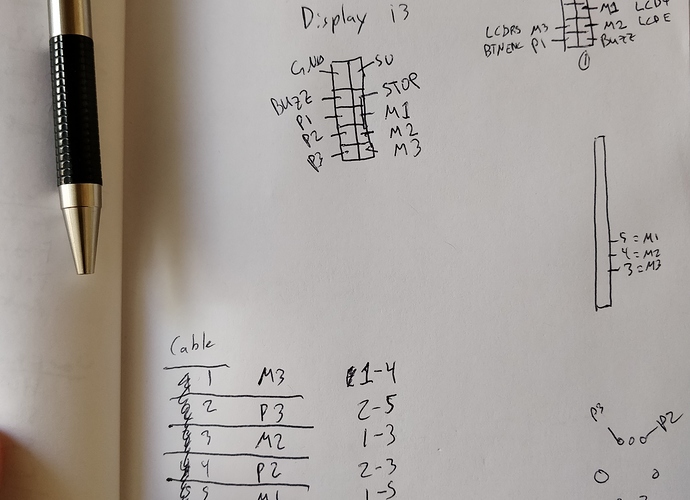 Display i3
M1 LCD4
LCDRS M3 M2 LCDE
BTNENC P1 BUZZ
1
GND 5V
BUZZ STOP
P1 M1
P2 M2
P3 M3
5 = M1
4 = M2
3 = M3
Cable
1 M3 1-4
2 P3 2-5
3 M2 1-3
4 P2 2-3
5 M1 1-5
P3 P2